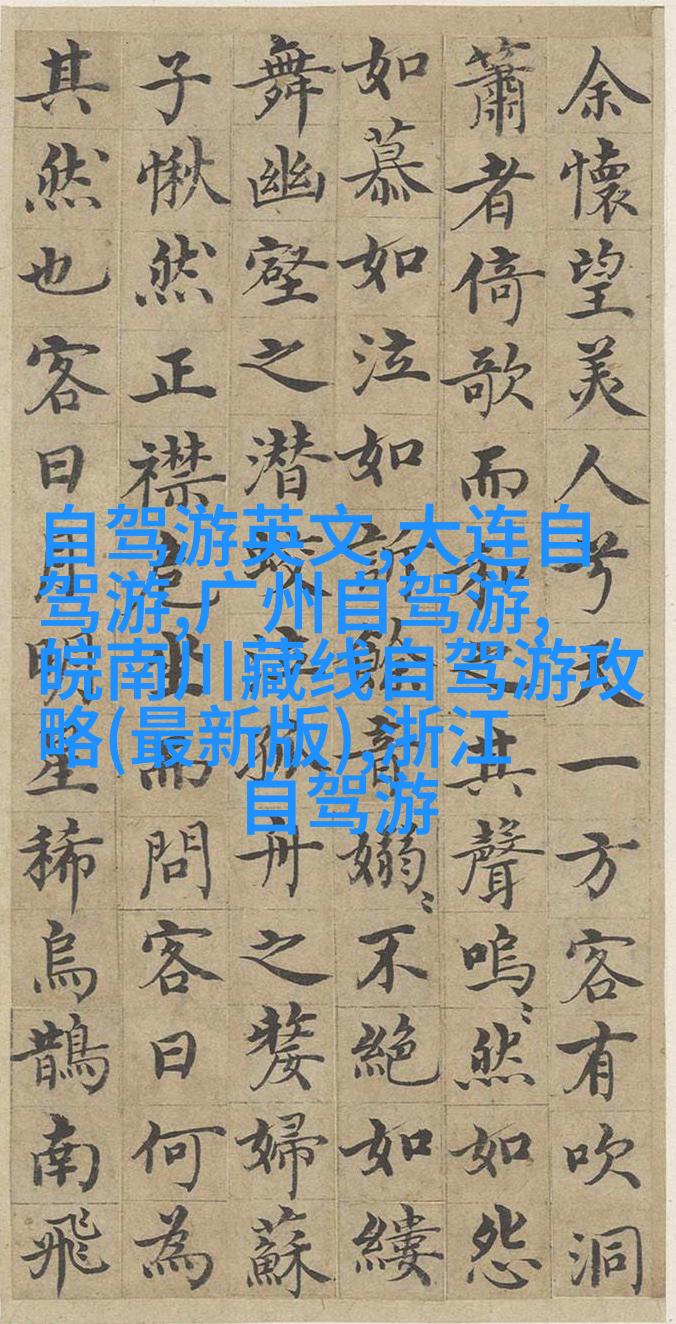 余懷望美人兮天一方客有吹洞
簫者倚歌而和之其聲嗚〻然如怨
如慕如泣如訴餘音嫋〻不絕如縷
舞幽壑之潛蛟泣孤舟之嫠婦蘇
子愀然正襟危坐而問客曰何為
其然也客曰月明星稀烏鵲南飛
自驾游英文,大连自
驾游,广州自驾游,
皖南川藏线自驾游攻
略(最新版),浙江
自驾游